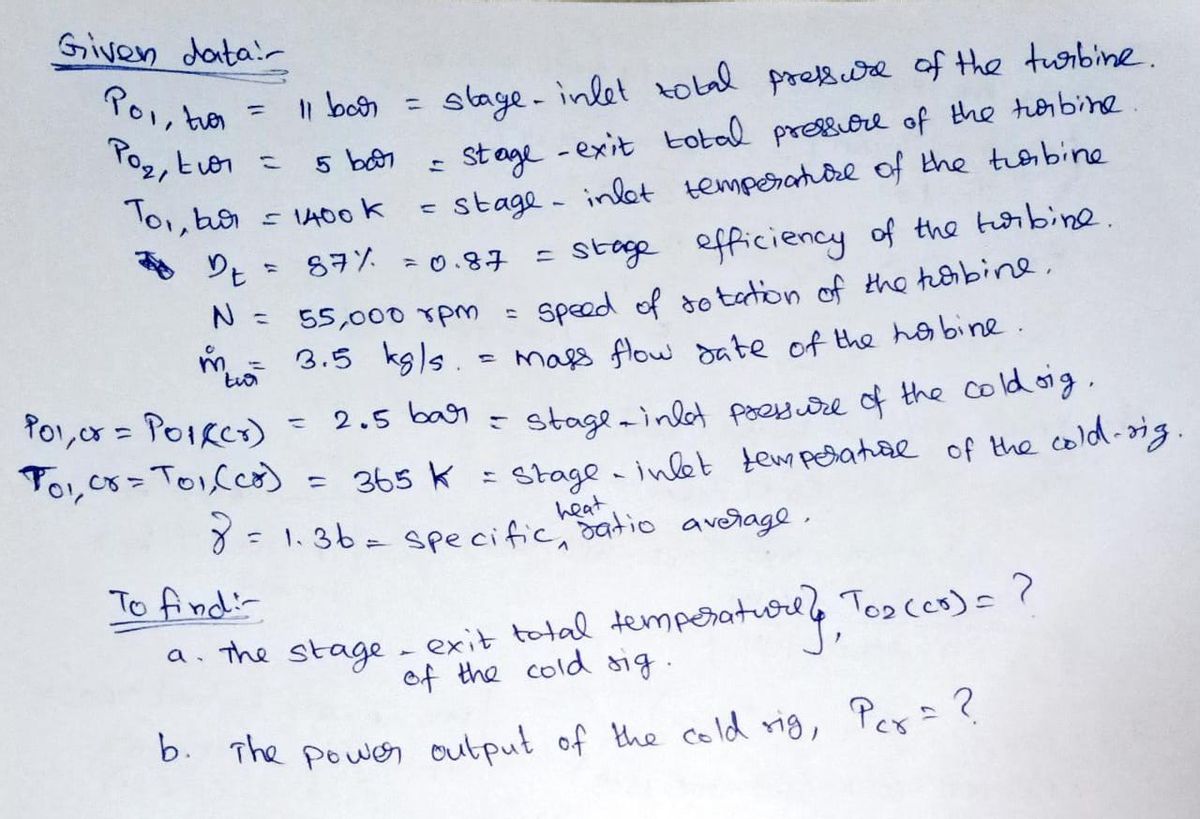 Given data:-
P01, tur = 11 bar = stage - inlet total pressure of the turbine.
P02, tur = 5 bar = stage - exit total pressure of the turbine.
T01, tur = 1400 K = stage - inlet temperature of the turbine
ηt = 87% = 0.87 = stage efficiency of the turbine.
N = 55,000 rpm = speed of rotation of the turbine.
ṁtur = 3.5 kg/s. = mass flow rate of the turbine.
P01,cr = P01(cr) = 2.5 bar = stage - inlet pressure of the cold rig.
T01, cr = T01,(cr) = 365 K = stage - inlet temperature of the cold-rig.
γ = 1.36 = specific heat ratio average.
To find:-
a. The stage - exit total temperature}, T02(cr) = ?
of the cold rig.
b. The power output of the cold rig, Pcr = ?